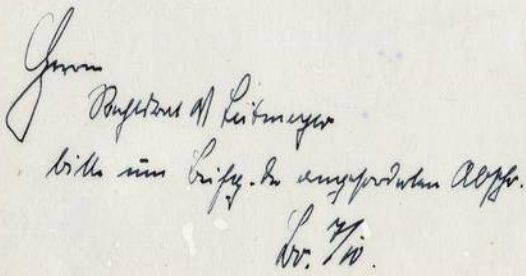 Herrn
Rechtsrat Leitmeyer
bitte um Beifüg. der angeforderten Abschr.
7/10.